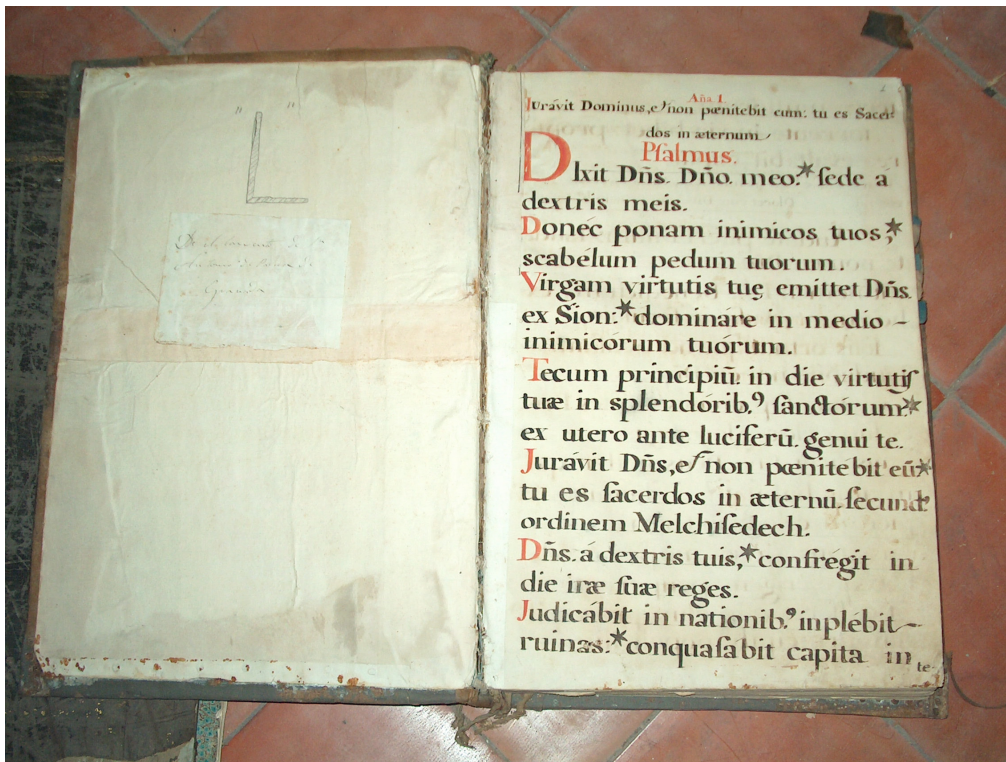 " "
De el convento de S.
Antonio de Padua de
Aña 1.
Jurávit Dominus, et non pœnitebit eum: tu es Sacer-
dos in æternum
Psalmus.
DIxit Dñs. Dño. meo:* sede á
dextris meis.
Donéc ponam inimicos tuos,*
scabélum pedum tuorum.
Virgam virtutis tuę emittet Dñs.
ex Sion:* domináre in medio -
inimicórum tuórum.
Tecum principiũ in die virtutis
tuæ in splendórib.⁹ sanctórum:*
ex utero ante luciferũ. genui te.
Jurávit Dñs, et non pœnitébit eũ*
tu es sacerdos in æternũ. secund.⁹
ordinem Melchisedech.
Dñs. á dextris tuis,* confrégit in
die iræ suæ reges.
Judicábit in nationib.⁹ inplébit
ruinas:* conquasabit capita in
te-